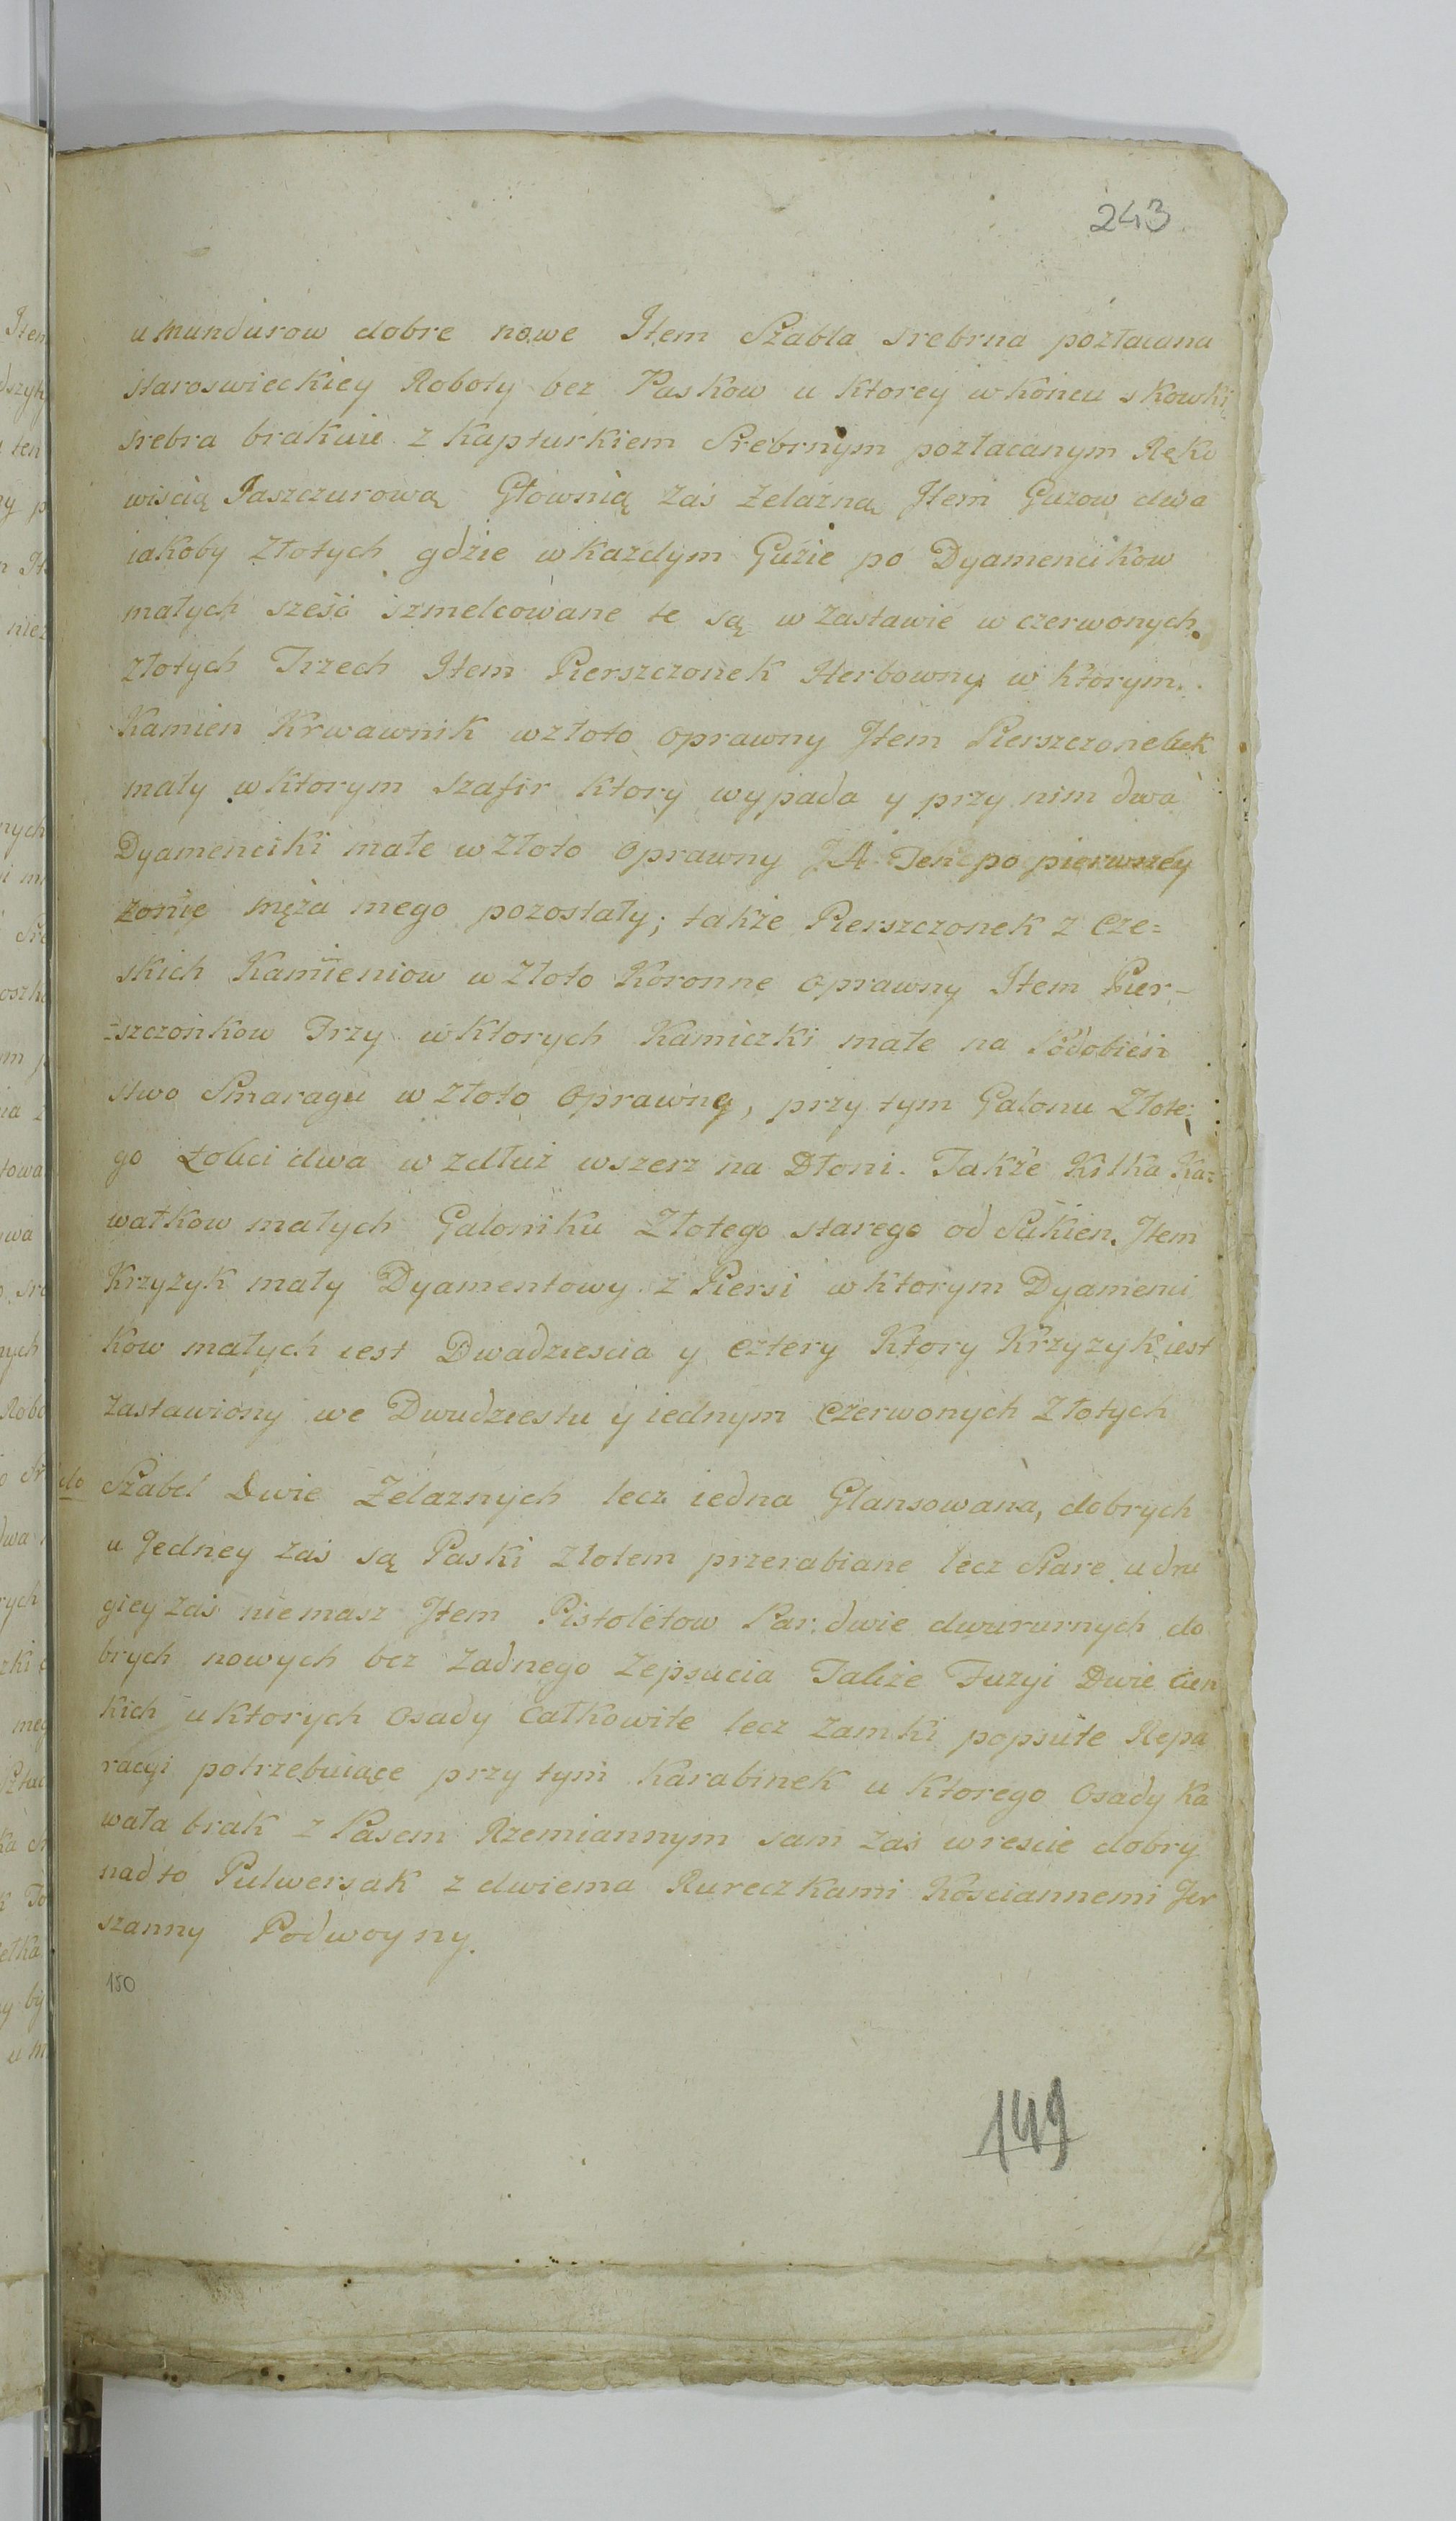 243
u Mundurow dobre nowe Item Szabla srebrna pozłacana
staroswieckiey Roboty bez Paskow u ktorey w końcu skowki
srebra brakuie z Kapturkiem Srebrnym pozłacanym Ręko
wiscią Jaszczurową Głownią zaś żelazną Item Guzow dwa
iakoby Złotych gdzie w kazdym Guzie po Dyamencikow
małych sześć szmelcowane te są w zastawie w czerwonych
złotych Trzech Item Pierszczonek Herbowny w ktorym
Kamien Krwawnik w złoto oprawny Item Pierszczoneczek
mały w ktorym szafir ktory wypada y przy nim dwa
Dyamenciki małe w Złoto oprawny A Ten po pierwszey
żonie męża mego pozostały; także Pierszczonek z Cze=
skich Kamieniow w Złoto Koronne oprawny Item Pier-
=szczonkow Trzy w ktorych Kamiczki małe na Podobień
stwo Smaragu w Złoto oprawne, przy tym Galonu Złote
go Łokci dwa w zdłuż wszerz na Dłoni. Także Kilka Ka=
wałkow małych Galoniku Złotego starego od Sukien. Item
Krzyzyk mały Dyamentowy z Piersi w ktorym Dyamenci
kow małych iest Dwadziescia y cztery Ktory Krzyzyk iest
zastawiony we Dwudziestu y iednym Czerwonych Złotych
do Szabel Dwie Żelaznych lecz iedna Glansowana, dobrych
u Jedney zaś są Paski złotem przerabiane lecz Stare u dru
giey zaś niemasz Item Pistoletow Par dwie dwururnych do
brych nowych bez żadnego Zepsucia Także Fuzyi Dwie cien
kich u ktorych Osady całkowite lecz zamki popsute Repa
racyi potrzebuiące przy tym Karabinek u ktorego Osady ka
wała brak z Pasem Rzemiannym sam zaś w rescie dobry
nadto Pulwersak z dwiema Rureczkami Kosciannemi Jer
szanny Podwoyny.
150
149